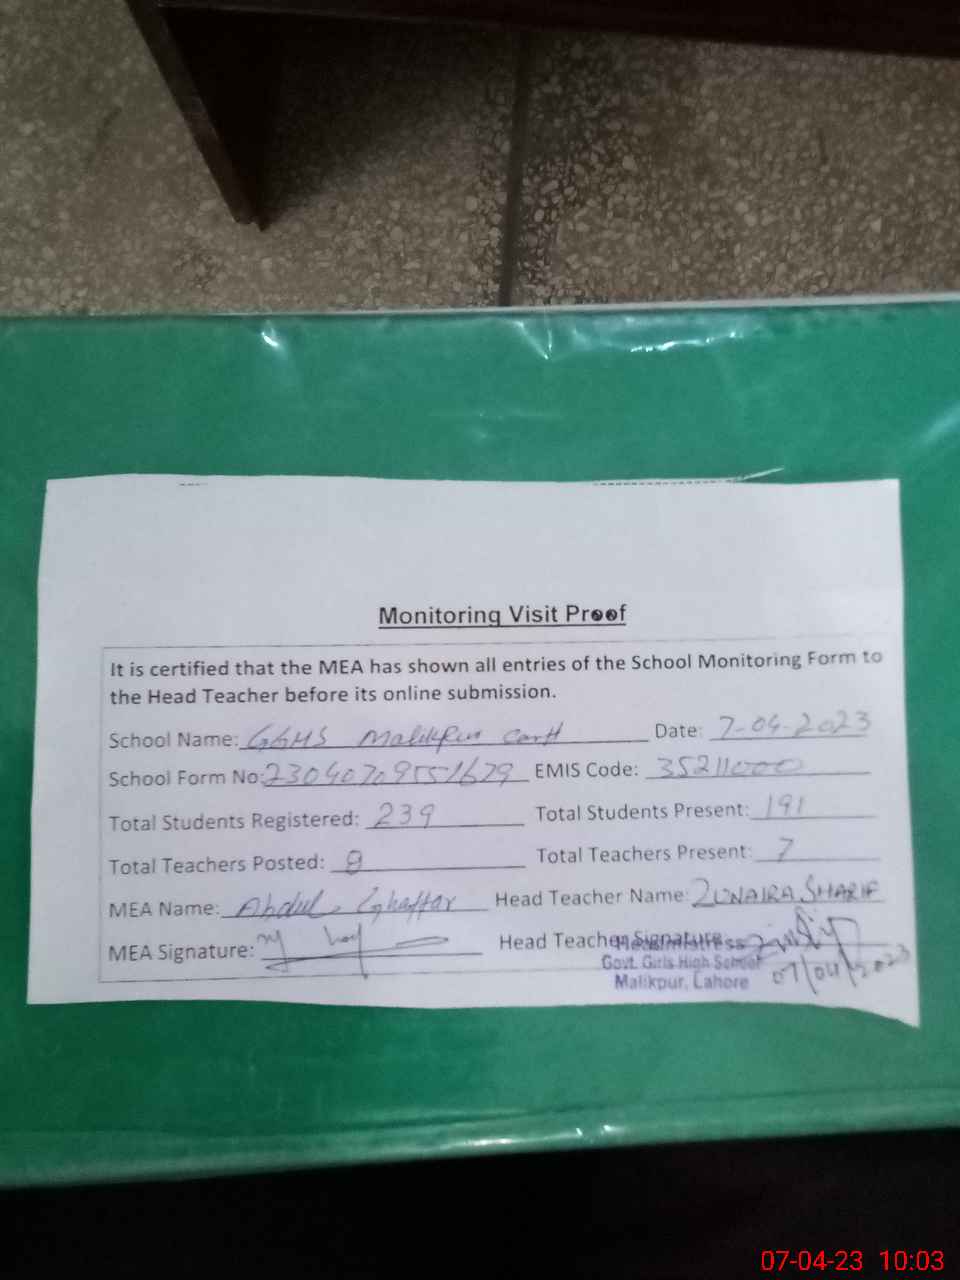 Monitoring Visit Proof
It is certified that the MEA has shown all entries of the School Monitoring Form to
the Head Teacher before its online submission.
School Name: GGHS Malikpur Cantt Date: 7-04-2023
School Form No: 23040709551679 EMIS Code: 35211000
Total Students Registered: 239 Total Students Present: 191
Total Teachers Posted: 8 Total Teachers Present: 7
MEA Name: Abdul Ghaffar Head Teacher Name: ZUNAIRA SHARIF
MEA Signature: Head Teacher Signature
Headmistress
Govt. Girls High School
Malikpur, Lahore 07/04/2023
07-04-23 10:03